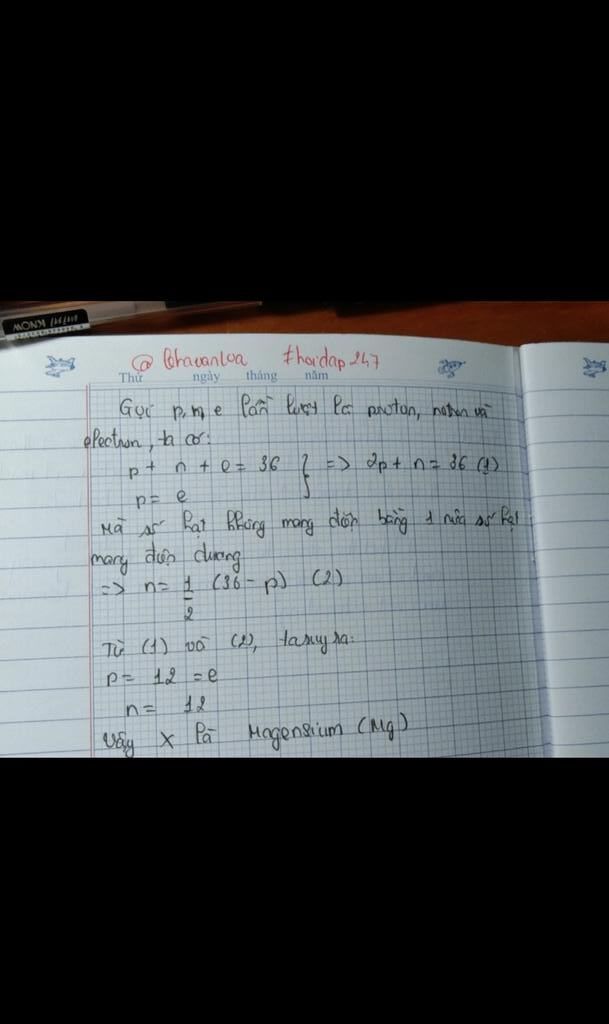 KNOW
@ lehavanloa #hoidap247
Thứ ngày tháng năm
Gọi p, n, e lần lượt là proton, notron và
electron, ta có:
p + n + e = 36 } => 2p + n = 36 (1)
p = e
Mà số hạt không mang điện bằng 1 nửa số hạt
mang điện dương
=> n = 1/2 (36 - p) (2)
Từ (1) và (2), ta suy ra:
p = 12 = e
n = 12
Vậy X là Magensium (Mg)